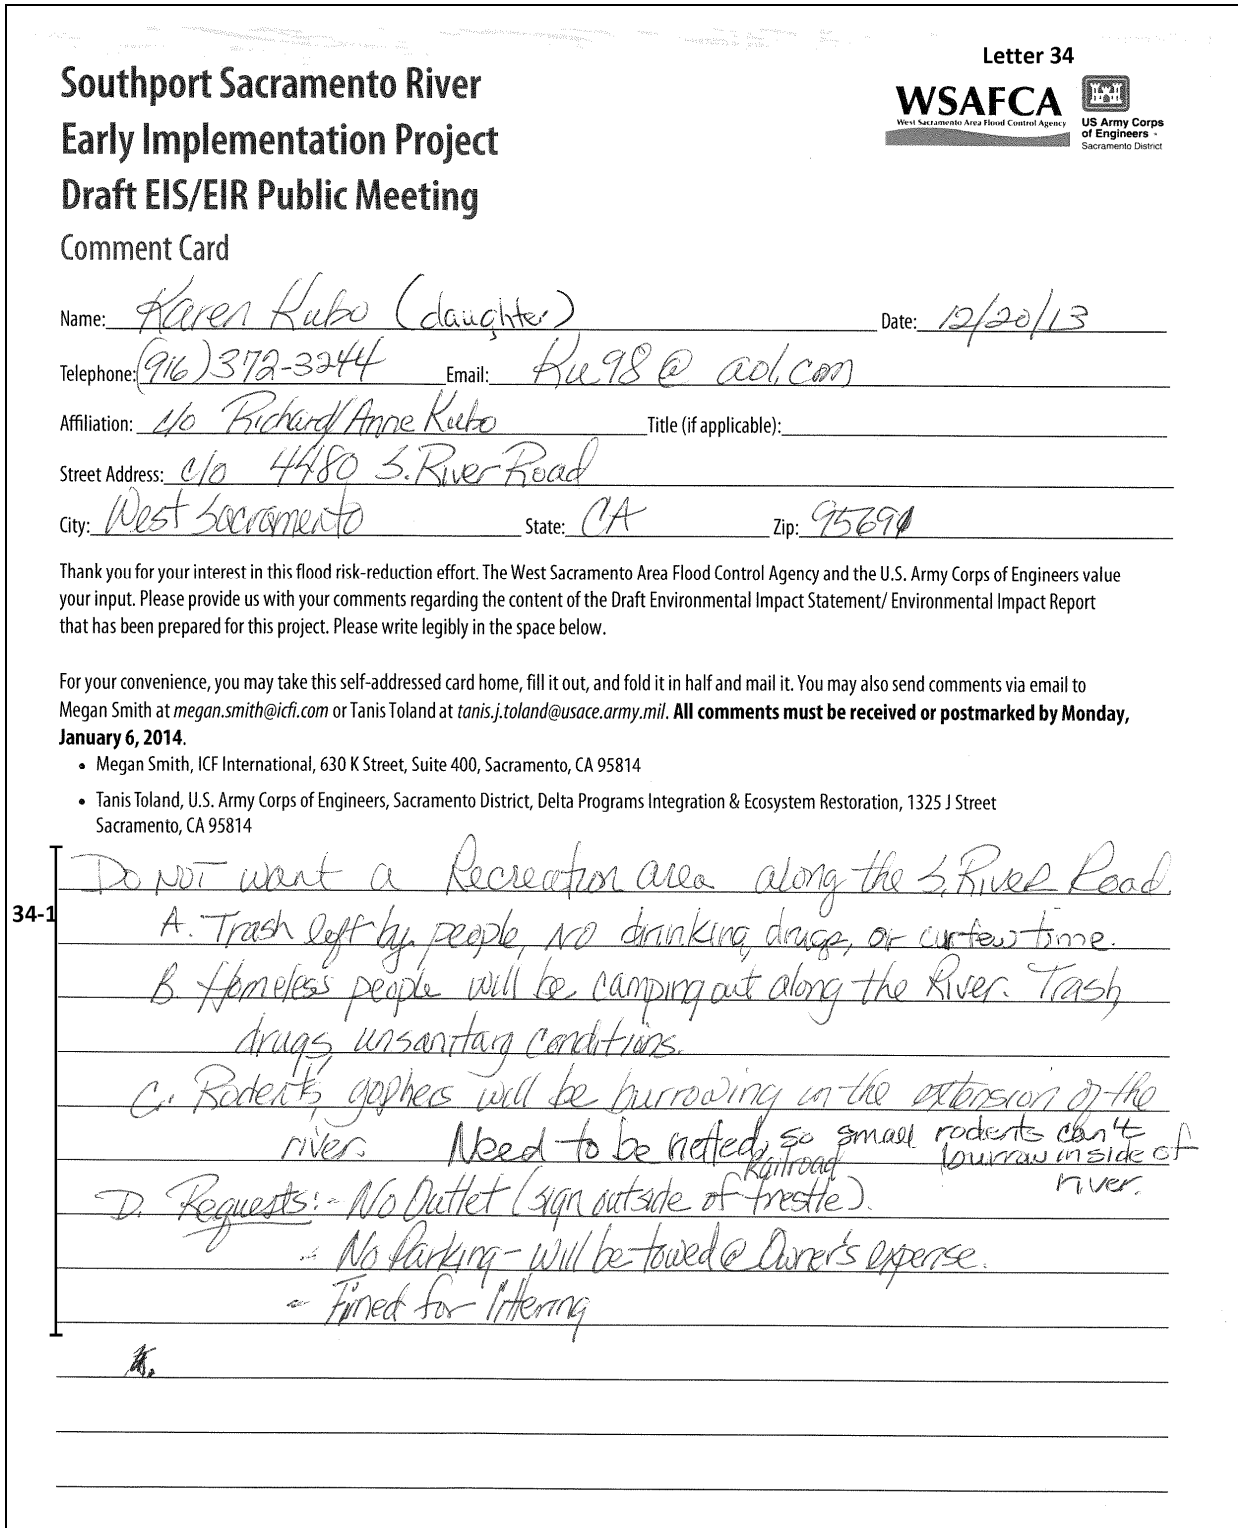 Letter 34
Southport Sacramento River
Early Implementation Project
Draft EIS/EIR Public Meeting
Comment Card
WSAFCA
West Sacramento Area Flood Control Agency
US Army Corps
of Engineers
Sacramento District
Name: Karen Kubo (daughter) Date: 12/20/13
Telephone: (916) 372-3244 Email: Ku98@aol.com
Affiliation: c/o Richard/Anne Kubo Title (if applicable):
Street Address: c/o 4480 S. River Road
City: West Sacramento State: CA Zip: 95691
Thank you for your interest in this flood risk-reduction effort. The West Sacramento Area Flood Control Agency and the U.S. Army Corps of Engineers value
your input. Please provide us with your comments regarding the content of the Draft Environmental Impact Statement/ Environmental Impact Report
that has been prepared for this project. Please write legibly in the space below.
For your convenience, you may take this self-addressed card home, fill it out, and fold it in half and mail it. You may also send comments via email to
Megan Smith at megan.smith@icfi.com or Tanis Toland at tanis.j.toland@usace.army.mil. All comments must be received or postmarked by Monday,
January 6, 2014.
• Megan Smith, ICF International, 630 K Street, Suite 400, Sacramento, CA 95814
• Tanis Toland, U.S. Army Corps of Engineers, Sacramento District, Delta Programs Integration & Ecosystem Restoration, 1325 J Street
Sacramento, CA 95814
Do NOT want a Recreation area along the S. River Road
34-1
A. Trash left by people, NO drinking, drugs, or curfew time.
B. Homeless people will be camping out along the River. Trash,
drugs, unsanitary conditions.
C. Rodents, gophers will be burrowing in the extension of the
river. Need to be netted, so small rodents can't
burrow inside of
river.
D. Requests: - No Outlet (sign outside of Railroad trestle).
- No Parking - will be towed @ Owner's expense.
- Fined for littering